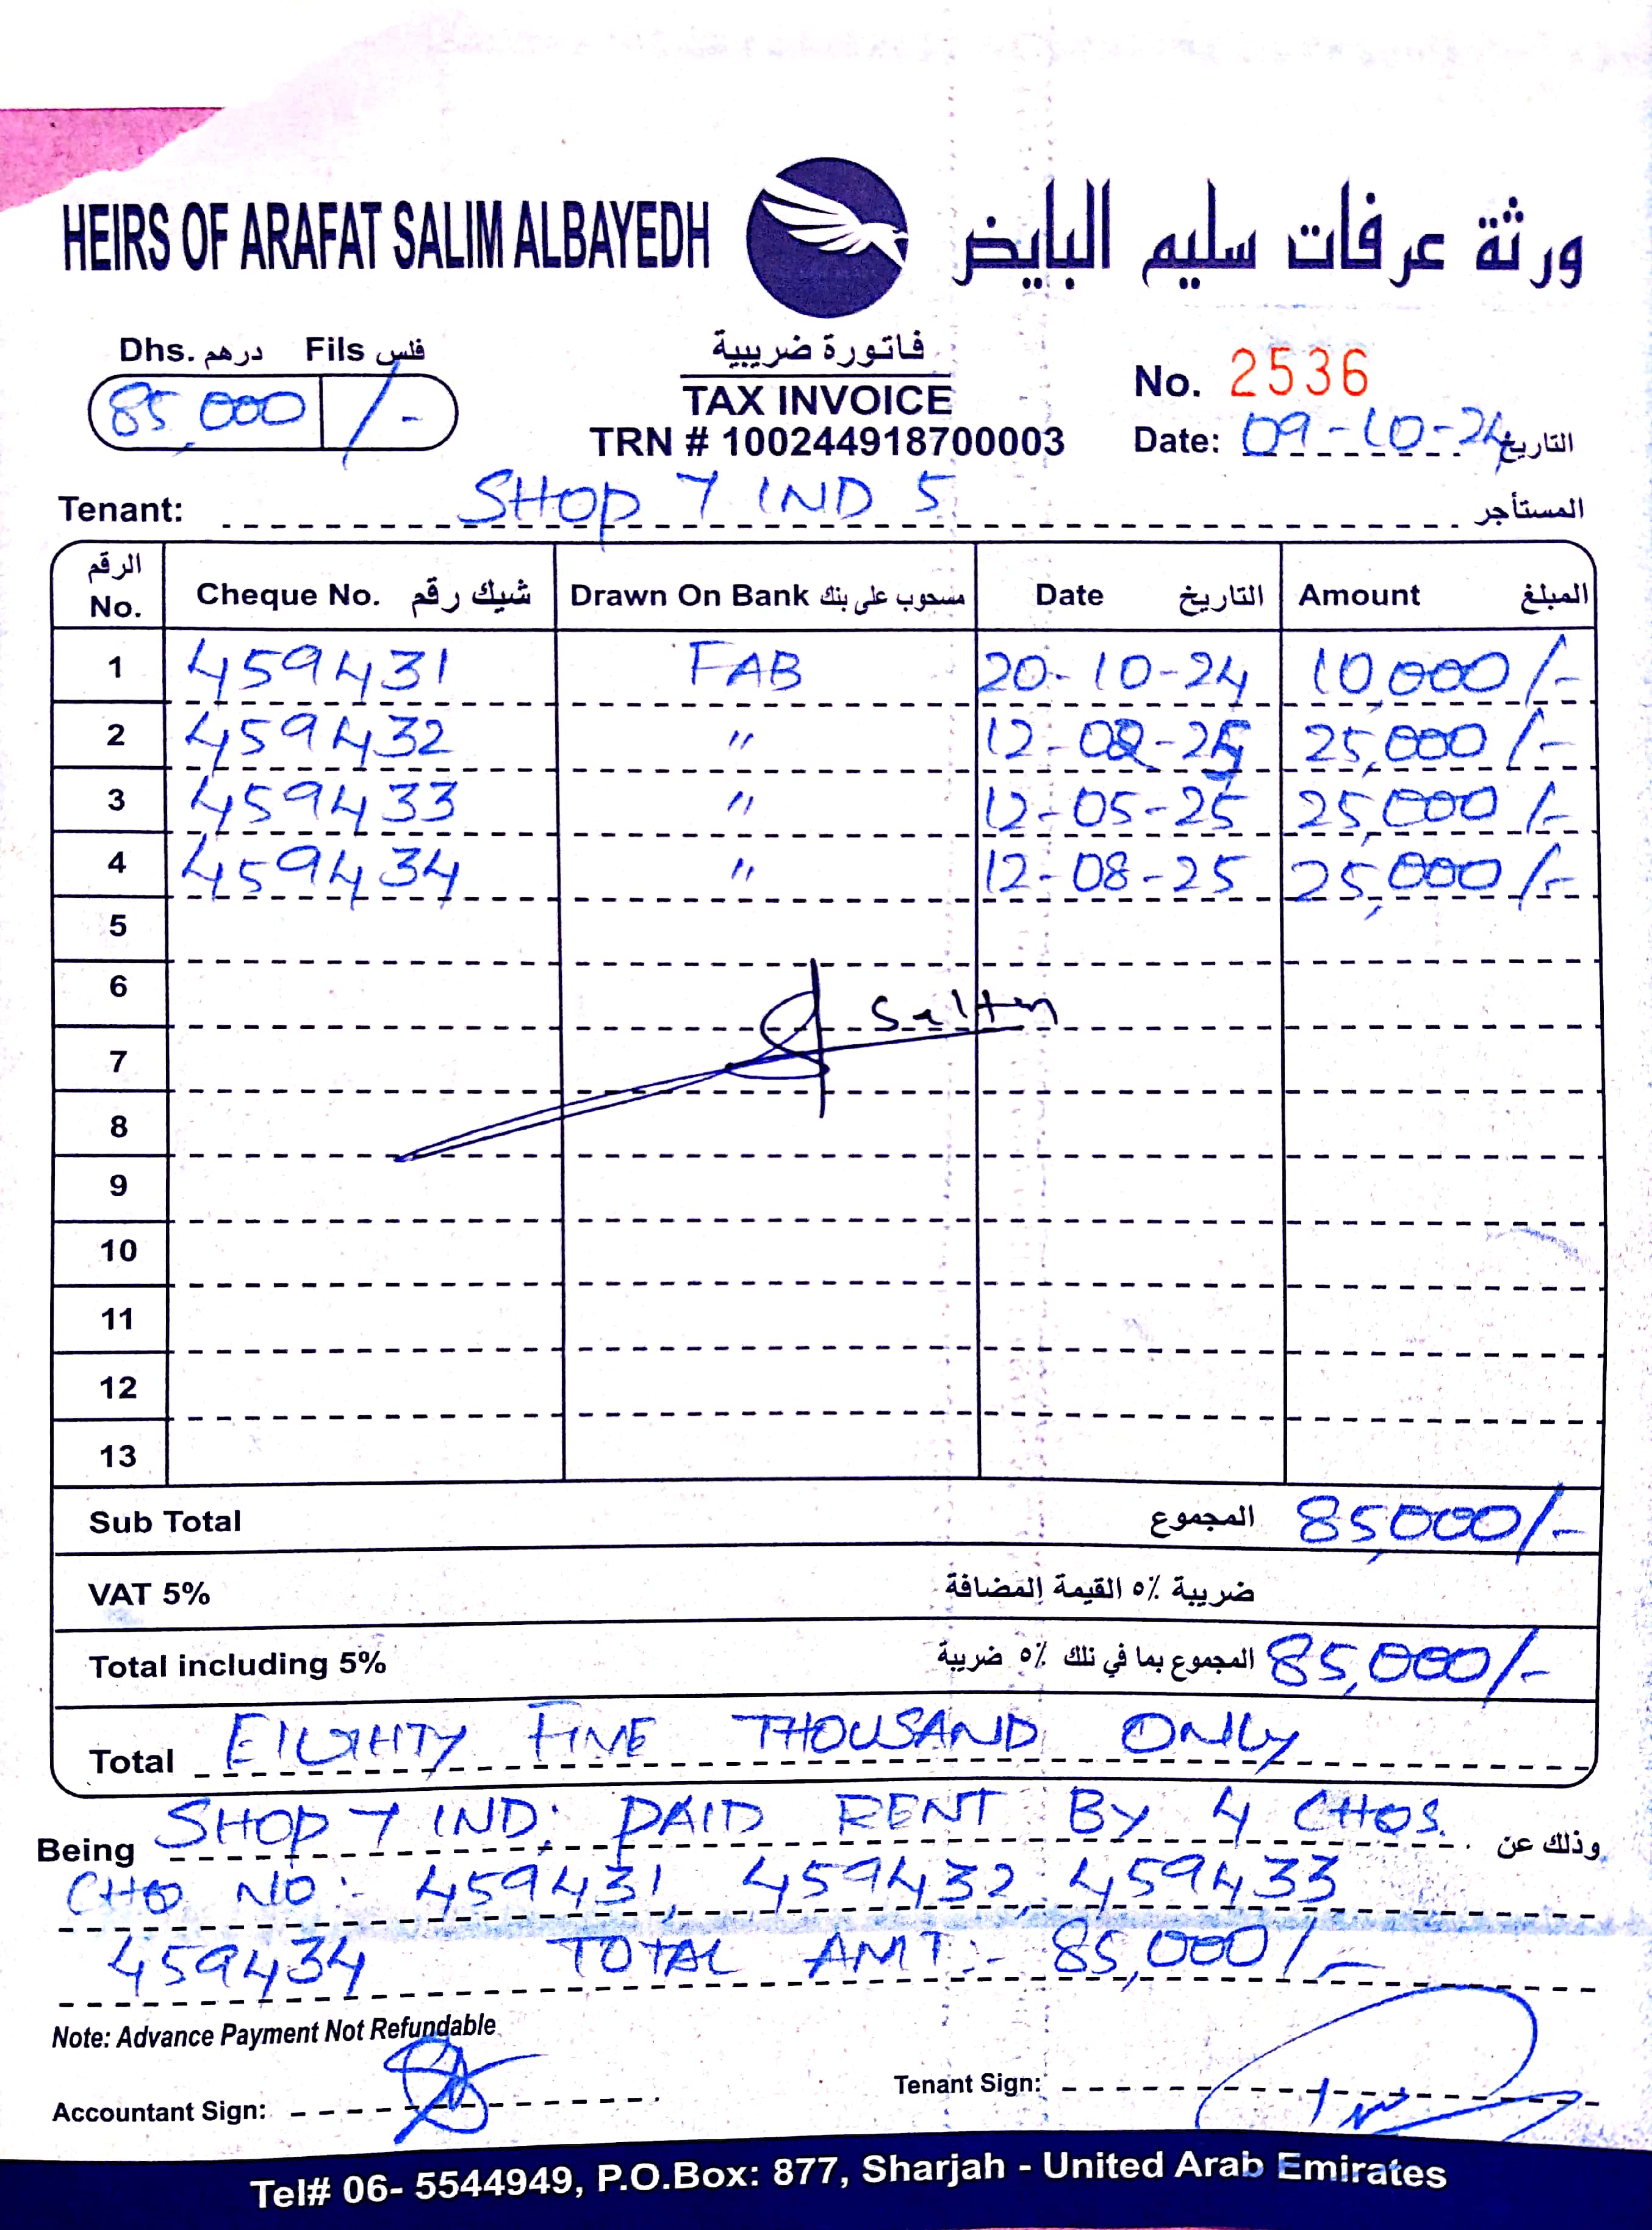 HEIRS OF ARAFAT SALIM ALBAYEDH ورثة عرفات سليم البايض
Dhs. درهم Fils فلس
85,000 /-
فاتورة ضريبية
TAX INVOICE
TRN # 100244918700003
No. 2536
Date: 09-10-24 التاريخ
Tenant: SHOP 7 IND 5 المستأجر
الرقم No. Cheque No. شيك رقم Drawn On Bank مسحوب على بنك Date التاريخ Amount المبلغ
1 459431 FAB 20-10-24 10,000/-
2 459432 " 12-02-25 25,000/-
3 459433 " 12-05-25 25,000/-
4 459434 " 12-08-25 25,000/-
5
6
7
8
9
10
11
12
13
Sub Total المجموع 85,000/-
VAT 5% ضريبة ٥٪ القيمة المضافة
Total including 5% المجموع بما في ذلك ٥٪ ضريبة 85,000/-
Total EIGHTY FIVE THOUSAND ONLY
Being SHOP 7 IND: PAID RENT BY 4 CHQS. وذلك عن
CHQ NO:- 459431, 459432, 459433
459434 TOTAL AMT:- 85,000/-
Note: Advance Payment Not Refundable
Accountant Sign: Tenant Sign:
Tel# 06- 5544949, P.O.Box: 877, Sharjah - United Arab Emirates